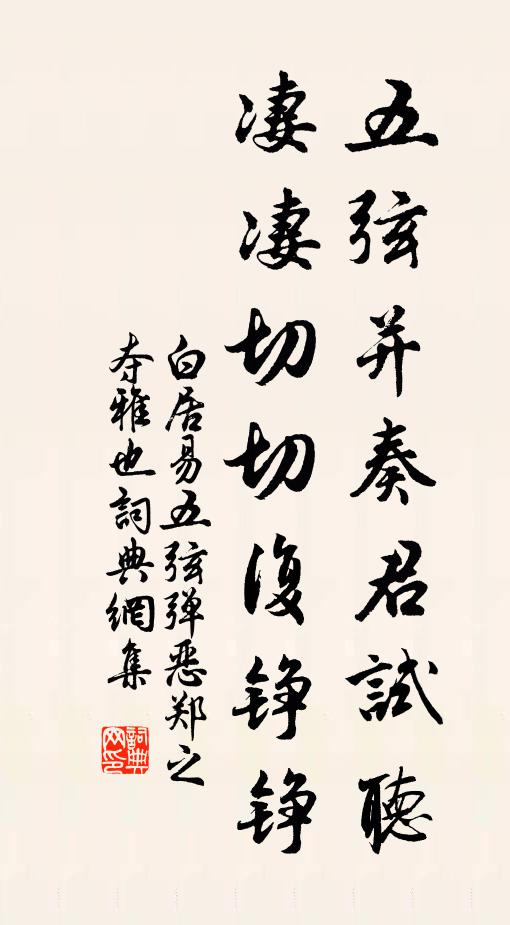 五弦并奏君试聽
凄凄切切復铮铮
白居易五弦弹恶郑之
夺雅也詞典網集
詞典网印